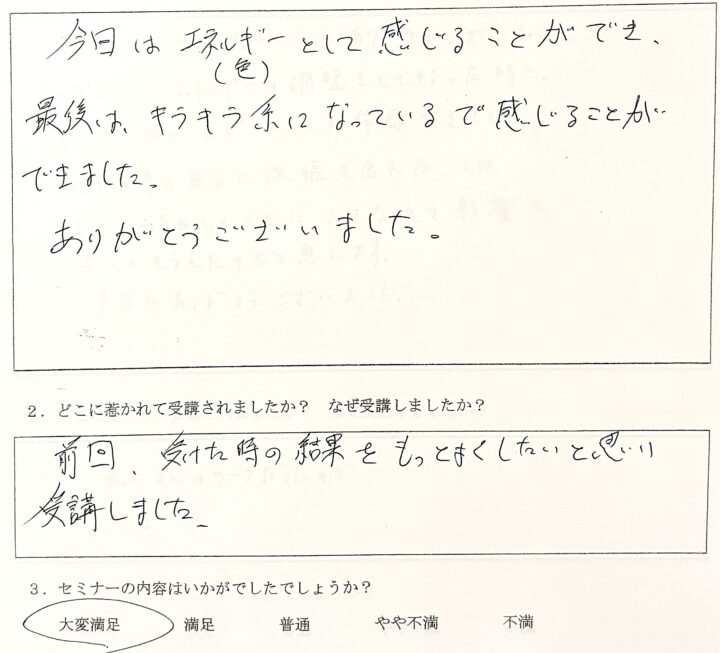 今日は エネルギーとして感じることができ、
(色)
最後は、キラキラ系になっているで感じることが
できました。
ありがとうございました。
2．どこに惹かれて受講されましたか？　なぜ受講しましたか？
前回、受けた時の結果をもっとよくしたいと思い
受講しました。
3．セミナーの内容はいかがでしたでしょうか？
大変満足　満足　普通　やや不満　不満